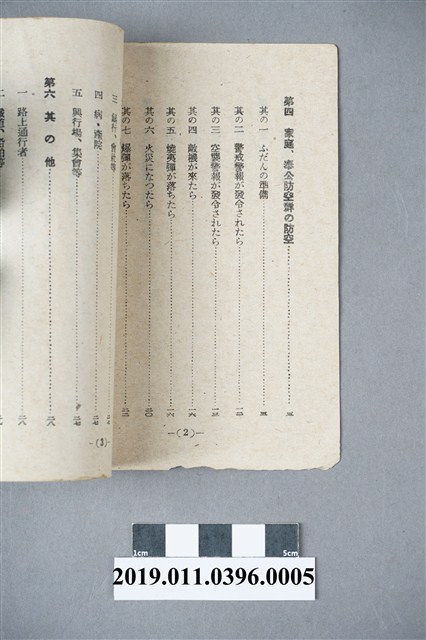 第四 家庭、奉公防空群の防空
其の一 ふだんの準備
其の二 警戒警報が發令されたら
其の三 空襲警報が發令されたら
其の四 敵機が來たら
其の五 燒夷彈が落ちたら 一六
其の六 火災になつたら 二〇
其の七 爆彈が落ちたら 二三
—(2)—
四 病・產院 二七
五 興行場、集會等 二七
第六 其の他 二八
一 路上通行者 二八
—(3)—
1cm
5cm
2019.011.0396.0005